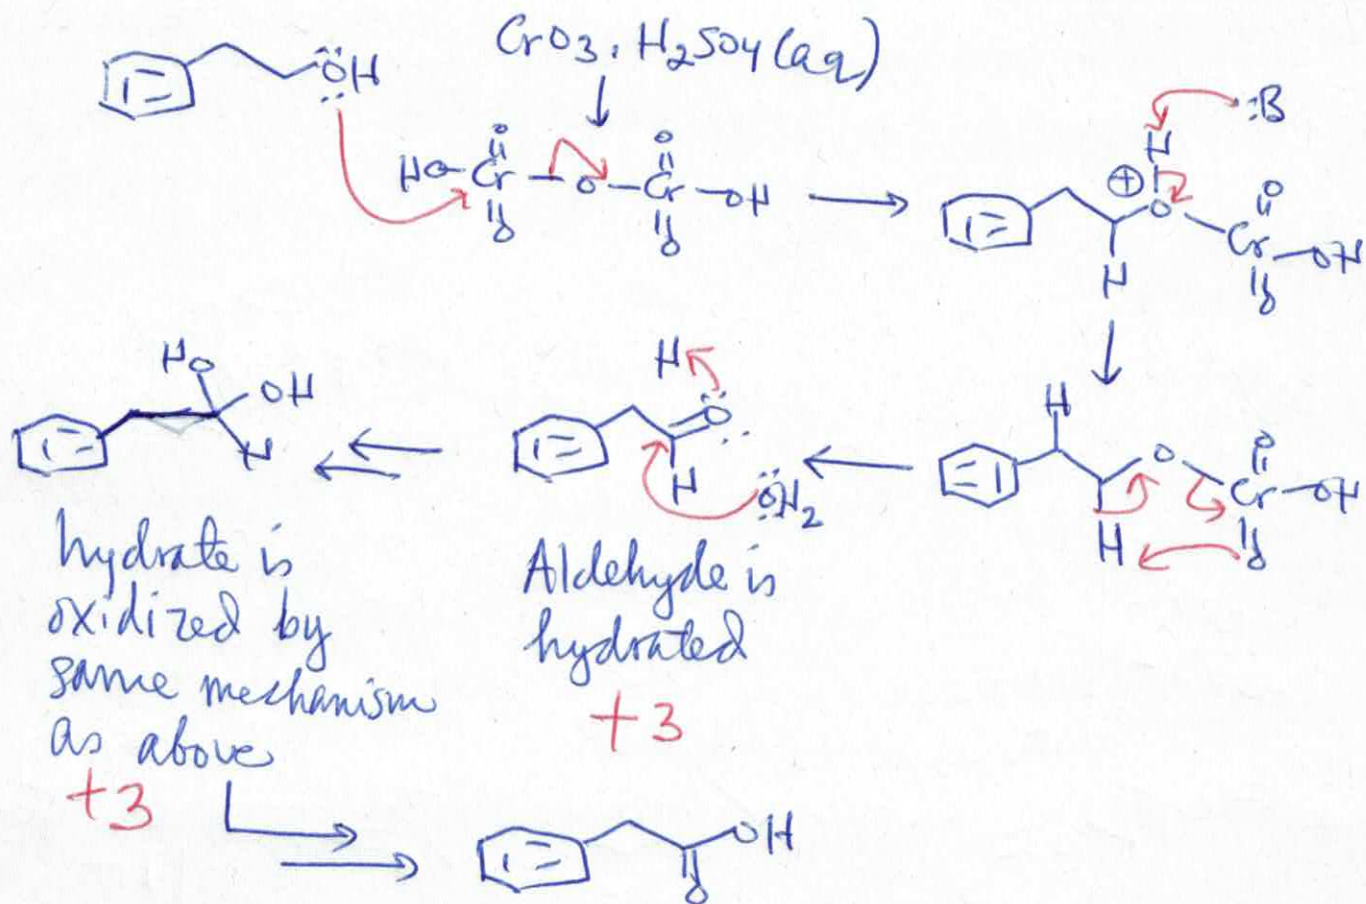 CrO3, H2SO4 (aq)
ÖH
O O
HO-Cr-O-Cr-OH
O O
:B
H
⊕
O O
Cr-OH
H O
HO OH
H
H
O
H
ÖH2
H
O O
Cr-OH
H O
hydrate is
oxidized by
same mechanism
as above
+3
Aldehyde is
hydrated
+3
OH
O